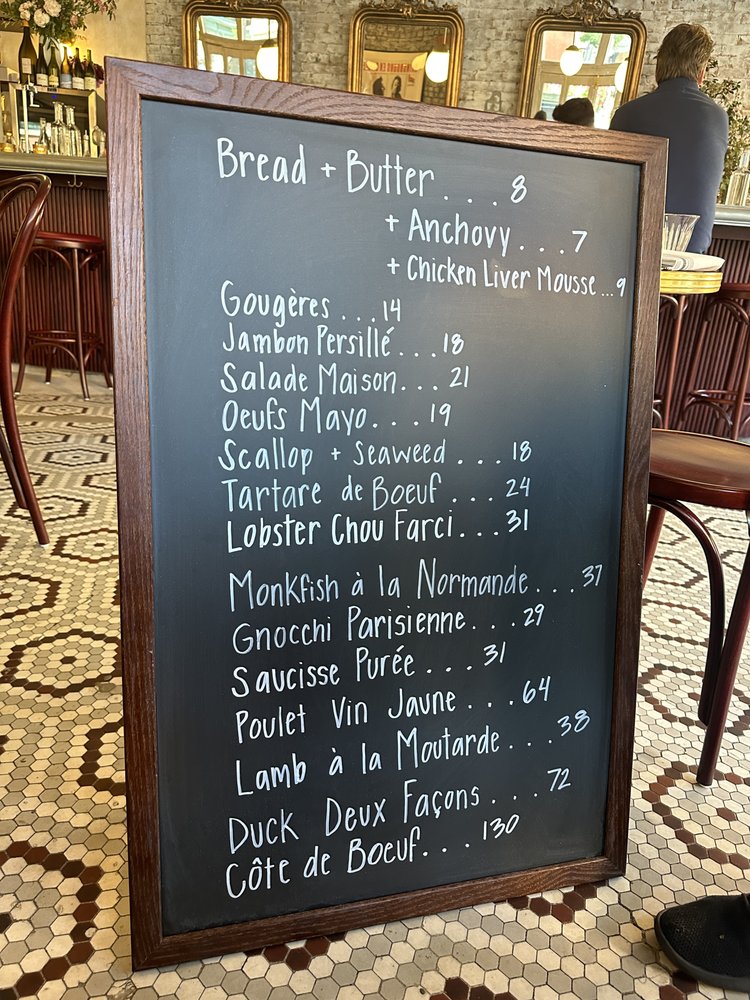 Bread + Butter . . . 8
+ Anchovy . . . 7
+ Chicken Liver Mousse ... 9
Gougères . . . 14
Jambon Persillé . . . 18
Salade Maison . . . 21
Oeufs Mayo . . . 19
Scallop + Seaweed . . . 18
Tartare de Boeuf . . . 24
Lobster Chou Farci . . . 31
Monkfish à la Normande . . . 37
Gnocchi Parisienne . . . 29
Saucisse Purée . . . 31
Poulet Vin Jaune . . . 64
Lamb à la Moutarde . . . 38
Duck Deux Façons . . . 72
Côte de Boeuf . . . 130